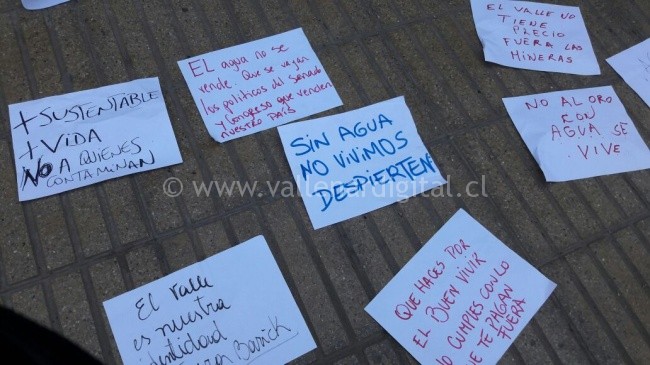 EL VALLE NO
TIENE
PRECIO
FUERA LAS
MINERAS
EL agua no se
vende. Que se vayan
los politicos del senado
y Congreso que venden
nuestro país
+ SUSTENTABLE
+ VIDA
NO A QUIENES
CONTAMINAN
SIN AGUA
NO VIVIMOS
DESPIERTEN
NO AL ORO
KON
AGUA SE
VIVE
© www.vallenardigital.cl
El Valle
es nuestra
identidad
Barrick
QUE HACES POR
EL BUEN VIVIR
NO CUMPLES CON LO
QUE TE PAGAN
FUERA